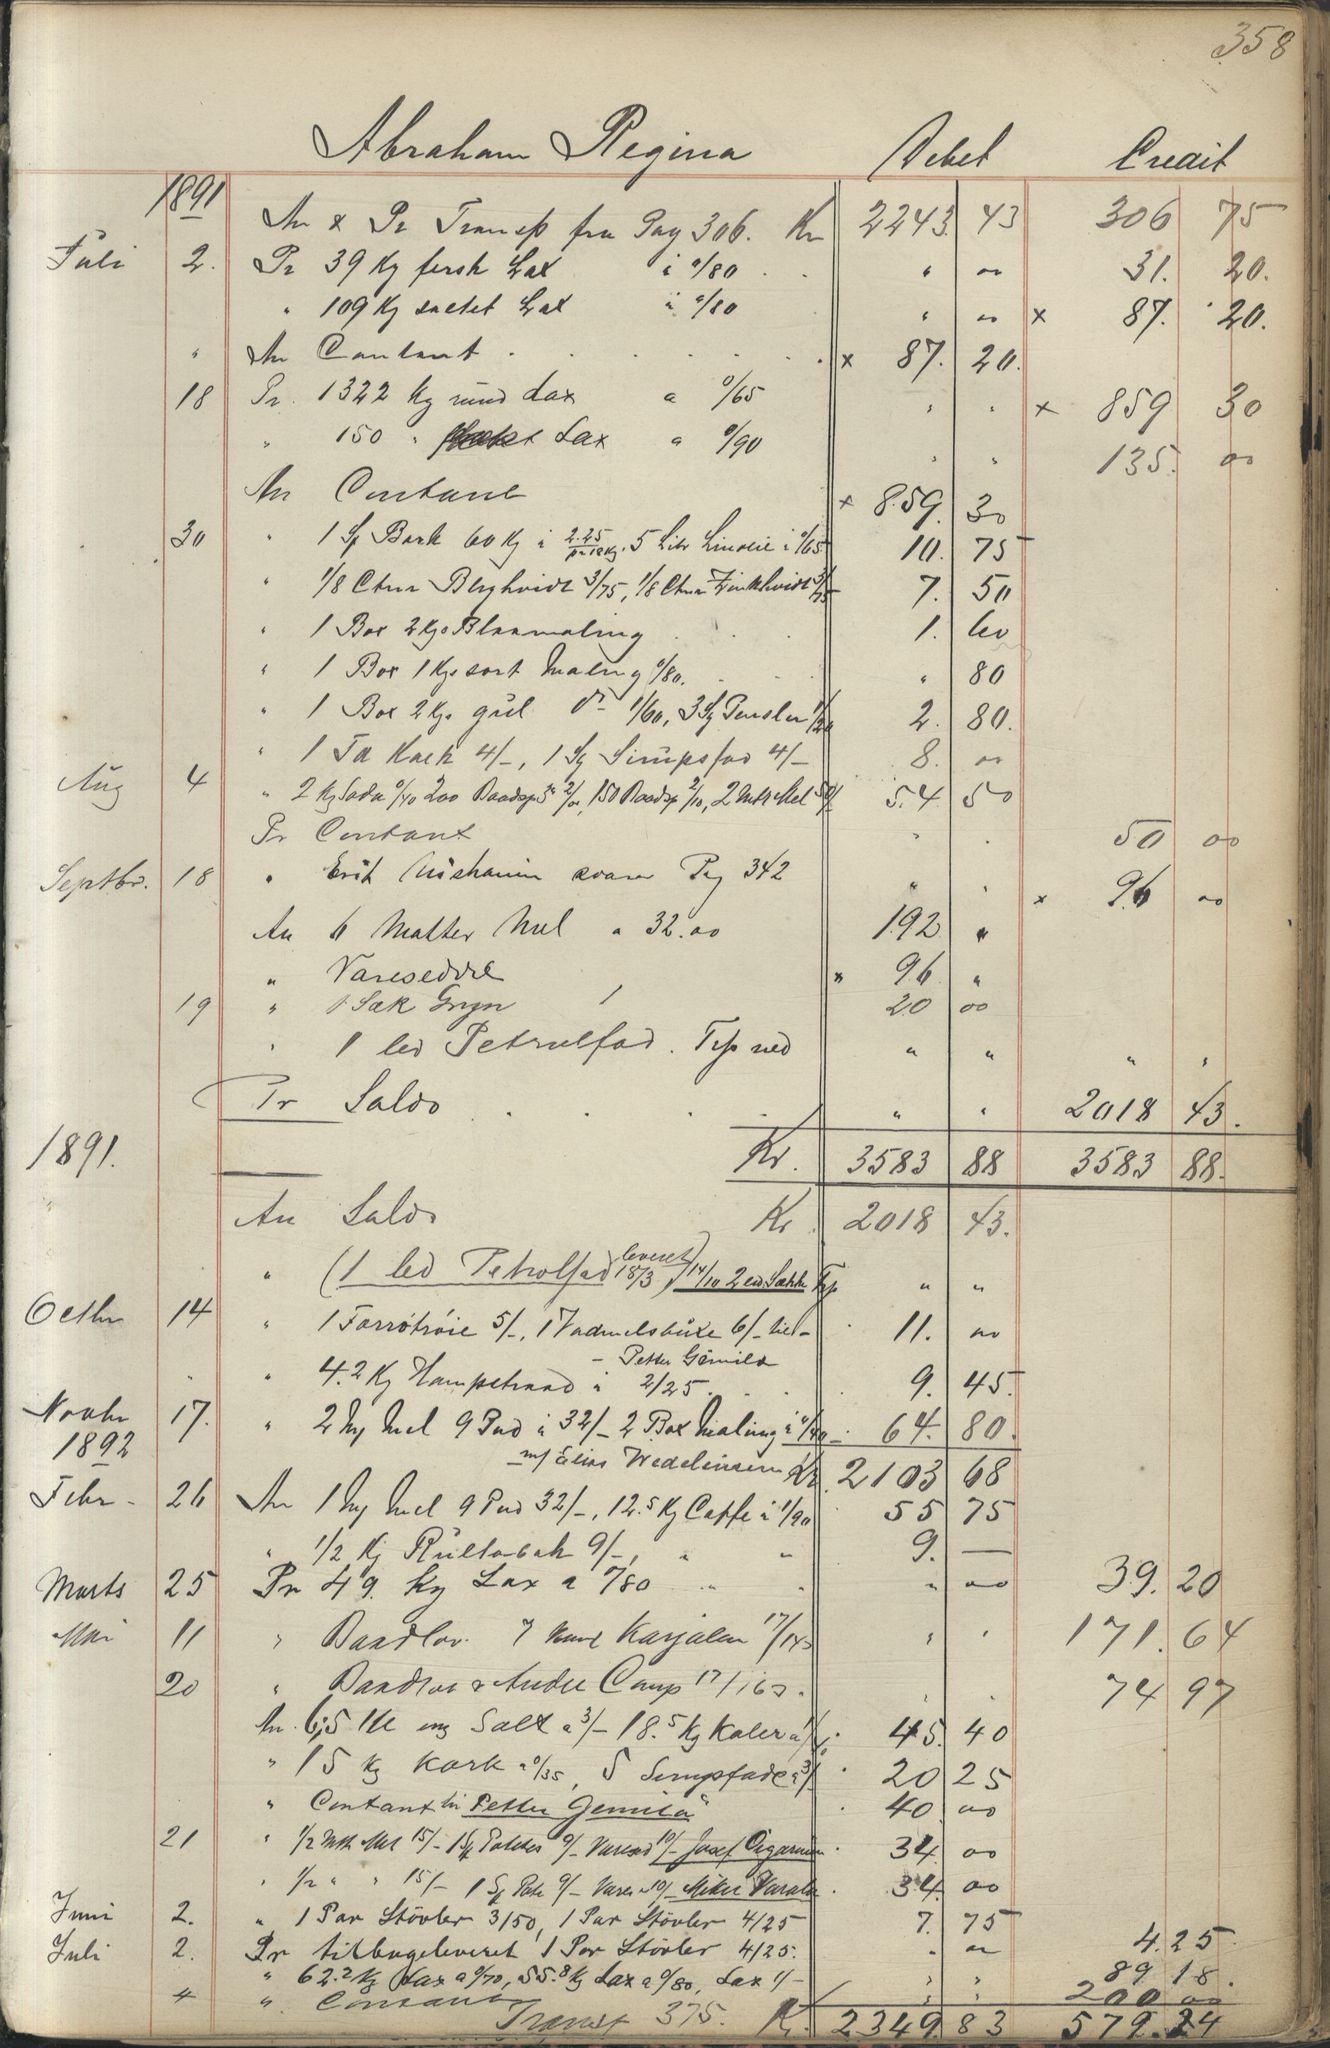 358
Abraham Regina Debet Credit
1891 An & Pr Transp fra Pag 306. Kr 2243. 43 306 75
Juli 2. Pr 39 Kg fersk Lax à 0/80 " 00 31. 20.
" 109 Kg saltet Lax à 0/80 " 00 x 87. 20.
" An Contant x 87. 20.
18 Pr. 1322 Kg rund Lax a 0/65 " " x 859 30
" 150 " Lax a 0/90 " " 135. 00
An Contant x 859. 30
30 " 1 Sk Bark 60 Kg à 2.25 pr 18 Kg. 5 Litr Linolie à 0/65 10. 75
" 1/8 Ctnr Blyhvidt 3/75, 1/8 Ctnr Zinkhvidt 3/75 7. 50
" 1 Box 2 Kgs Blaamaling 1. 60
" 1 Box 1 Kgs sort Maling 0/80. " 80
" 1 Box 2 Kgs gul do 1/60, 3 Sy Pensler 1/20 2. 80.
" 1 Td Kalk 4/-, 1 Sy Sirupsfad 4/- 8. 00
Aug 4 " 2 Kg Soda 0/40 200 Baadsp 3" 2/00, 150 Baadsp 2/10, 2 Mtr Mel 50/- 54 50
Pr Contant " " 50 00
Septbr. 18 " Erik svarer Pag 342 " " x 96 00
An 6 Matter Mel a 32.00 192 "
" Vareseddel x 96 "
19 " 1 Sæk Gryn 20 00
" 1 led Petrolfad. Trp ned " " " "
Pr Saldo " " 2018 43.
1891. Kr. 3583 88 3583 88.
An Saldo Kr. 2018 43.
" (1 led Petrolfad leveret 18/3) 14/10 2 led Sække Trp " "
Octbr 14 " 1 Færøtrøie 5/-, 1 Vadmelsbuxe 6/- til - 11. 00
- Petter Gemilä
" " 4.2 Kg Hampetraad à 2/25 9. 45.
Novbr 17. " 2 Mt Mel 9 Pud à 32/- 2 Box Maling à 0/40 - 64. 80.
1892 m/ Elias Wedelinsen Kr. 2103 68
Febr - 26 An 1 Mt Mel 9 Pud 32/-, 12.5 Kg Caffe à 1/90 55 75
" 1/2 Kg Rultobak 9/-, " " 9. —
Marts 25 Pr 49 Kg Lax a 0/80 " " " 00 39. 20
Mai 11 " Baadlav. Karjalen 17/14 " " 171. 64
20 " Baadlav & Andre Comp 17/16 " " 74 97
An 6,5 Hl eng Salt a 3/- 18.5 Kg a 45. 40
" 15 Kg Kork a 0/35, 5 Sirupsfade a 3/- 20 25
" Contant til Petter Gemilä 40 00
21 " 1/2 Mtt Mel 15/- 1 Sk Poteter 9/- Varesed 10/- Josef 34 00
" 1/2 " " 15/- 1 Sk Pote 9/- Vares 10/- Mikel Varala 34. 00
Juni 2. " 1 Par Støvler 3/50, 1 Par Støvler 4/25 7. 75
Juli 2. Pr tilbageleveret 1 Par Støvler 4/25. " 00 4. 25
" 62.2 Kg Lax a 0/70, 55.8 Kg Lax a 0/80, Lax 1/- " " 89 18.
4 " Contant " " 200 00
Transt 375. Kr. 2349. 83 579. 24